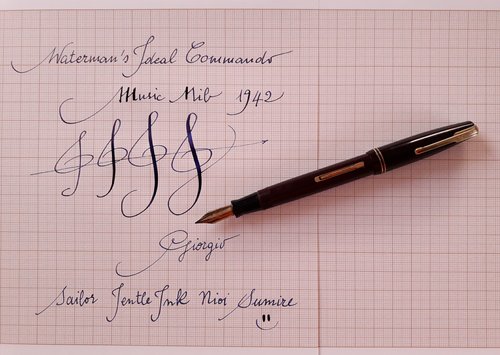 Waterman's Ideal Commando
Music Nib 1942
Giorgio
Sailor Jentle Ink Nioi Sumire